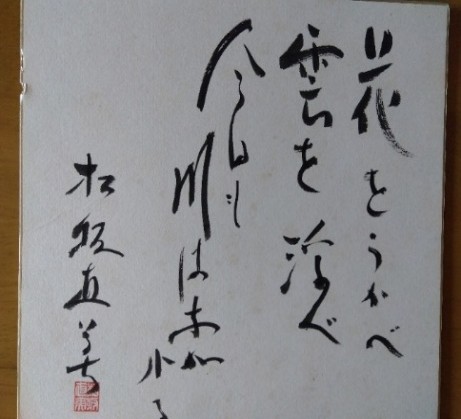 花をうかべ
雲を浮べ
今日も
川は
松坂直美